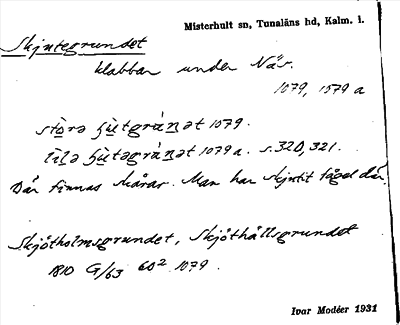 Misterhult sn, Tunaläns hd, Kalm. l.
Skjutegrundet
klabbar under Näs.
1079, 1079 a
stòrə ʂùtgrúnət 1079.
lìlə ʂùtəgrúnət 1079 a. s. 320, 321.
Där finnas skärar. Man har skjutit fågel där.
Skjötholmsgrundet, Skjöthällsgrundet
1810 G/63 60² 1079.
Ivar Modéer 1931